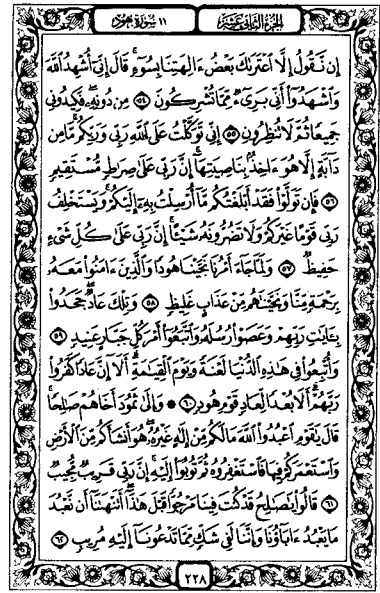 الجزء الثانى عشر
١١ سورة هود
إِن نَّقُولُ إِلَّا ٱعْتَرَىٰكَ بَعْضُ ءَالِهَتِنَا بِسُوٓءٍۗ قَالَ إِنِّىٓ أُشْهِدُ ٱللَّهَ
وَٱشْهَدُوٓا۟ أَنِّى بَرِىٓءٌ مِّمَّا تُشْرِكُونَ ٥٤ مِن دُونِهِۦۖ فَكِيدُونِى
جَمِيعًا ثُمَّ لَا تُنظِرُونِ ٥٥ إِنِّى تَوَكَّلْتُ عَلَى ٱللَّهِ رَبِّى وَرَبِّكُمۚ مَّا مِن
دَآبَّةٍ إِلَّا هُوَ ءَاخِذٌۢ بِنَاصِيَتِهَآۚ إِنَّ رَبِّى عَلَىٰ صِرَٰطٍ مُّسْتَقِيمٍ
٥٦ فَإِن تَوَلَّوْا۟ فَقَدْ أَبْلَغْتُكُم مَّآ أُرْسِلْتُ بِهِۦٓ إِلَيْكُمْۚ وَيَسْتَخْلِفُ
رَبِّى قَوْمًا غَيْرَكُمْ وَلَا تَضُرُّونَهُۥ شَيْـًٔاۚ إِنَّ رَبِّى عَلَىٰ كُلِّ شَىْءٍ
حَفِيظٌ ٥٧ وَلَمَّا جَآءَ أَمْرُنَا نَجَّيْنَا هُودًا وَٱلَّذِينَ ءَامَنُوا۟ مَعَهُۥ
بِرَحْمَةٍ مِّنَّا وَنَجَّيْنَٰهُم مِّنْ عَذَابٍ غَلِيظٍ ٥٨ وَتِلْكَ عَادٌۖ جَحَدُوا۟
بِـَٔايَٰتِ رَبِّهِمْ وَعَصَوْا۟ رُسُلَهُۥ وَٱتَّبَعُوٓا۟ أَمْرَ كُلِّ جَبَّارٍ عَنِيدٍ ٥٩
وَأُتْبِعُوا۟ فِى هَٰذِهِ ٱلدُّنْيَا لَعْنَةً وَيَوْمَ ٱلْقِيَٰمَةِۗ أَلَآ إِنَّ عَادًا كَفَرُوا۟
رَبَّهُمْۗ أَلَا بُعْدًا لِّعَادٍ قَوْمِ هُودٍ ٦٠ ۞ وَإِلَىٰ ثَمُودَ أَخَاهُمْ صَٰلِحًاۚ
قَالَ يَٰقَوْمِ ٱعْبُدُوا۟ ٱللَّهَ مَا لَكُم مِّنْ إِلَٰهٍ غَيْرُهُۥۖ هُوَ أَنشَأَكُم مِّنَ ٱلْأَرْضِ
وَٱسْتَعْمَرَكُمْ فِيهَا فَٱسْتَغْفِرُوهُ ثُمَّ تُوبُوٓا۟ إِلَيْهِۚ إِنَّ رَبِّى قَرِيبٌ مُّجِيبٌ
٦١ قَالُوا۟ يَٰصَٰلِحُ قَدْ كُنتَ فِينَا مَرْجُوًّا قَبْلَ هَٰذَآۖ أَتَنْهَىٰنَآ أَن نَّعْبُدَ
مَا يَعْبُدُ ءَابَآؤُنَا وَإِنَّنَا لَفِى شَكٍّ مِّمَّا تَدْعُونَآ إِلَيْهِ مُرِيبٍ ٦٢
٢٢٨